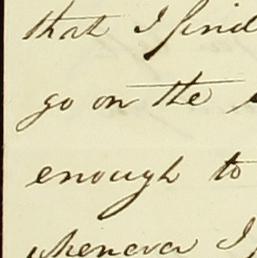 that I find
go on the
enough to
whenever I